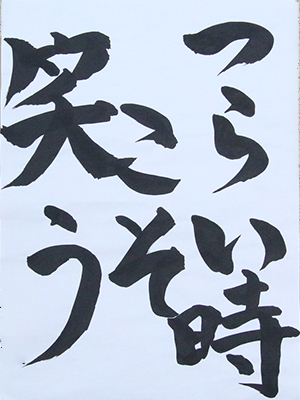 つらい時
こそ
笑う